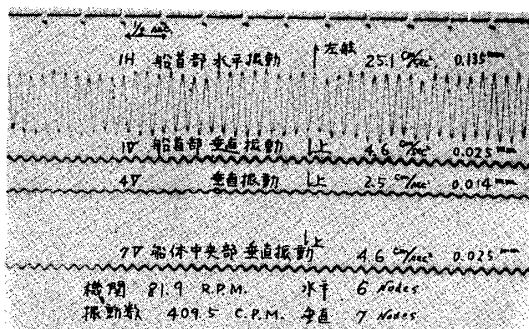 1/2 sec.
1H 船首部 水平振動 左舷 25.1 cm/sec² 0.135 mm
1V 船首部 垂直振動 上 4.6 cm/sec² 0.025 mm
4V 垂直振動 上 2.5 cm/sec² 0.014 mm
7V 船体中央部 垂直振動 上 4.6 cm/sec² 0.025 mm
機関 81.9 R.P.M. 水平 6 Nodes
振動数 409.5 C.P.M. 垂直 7 Nodes